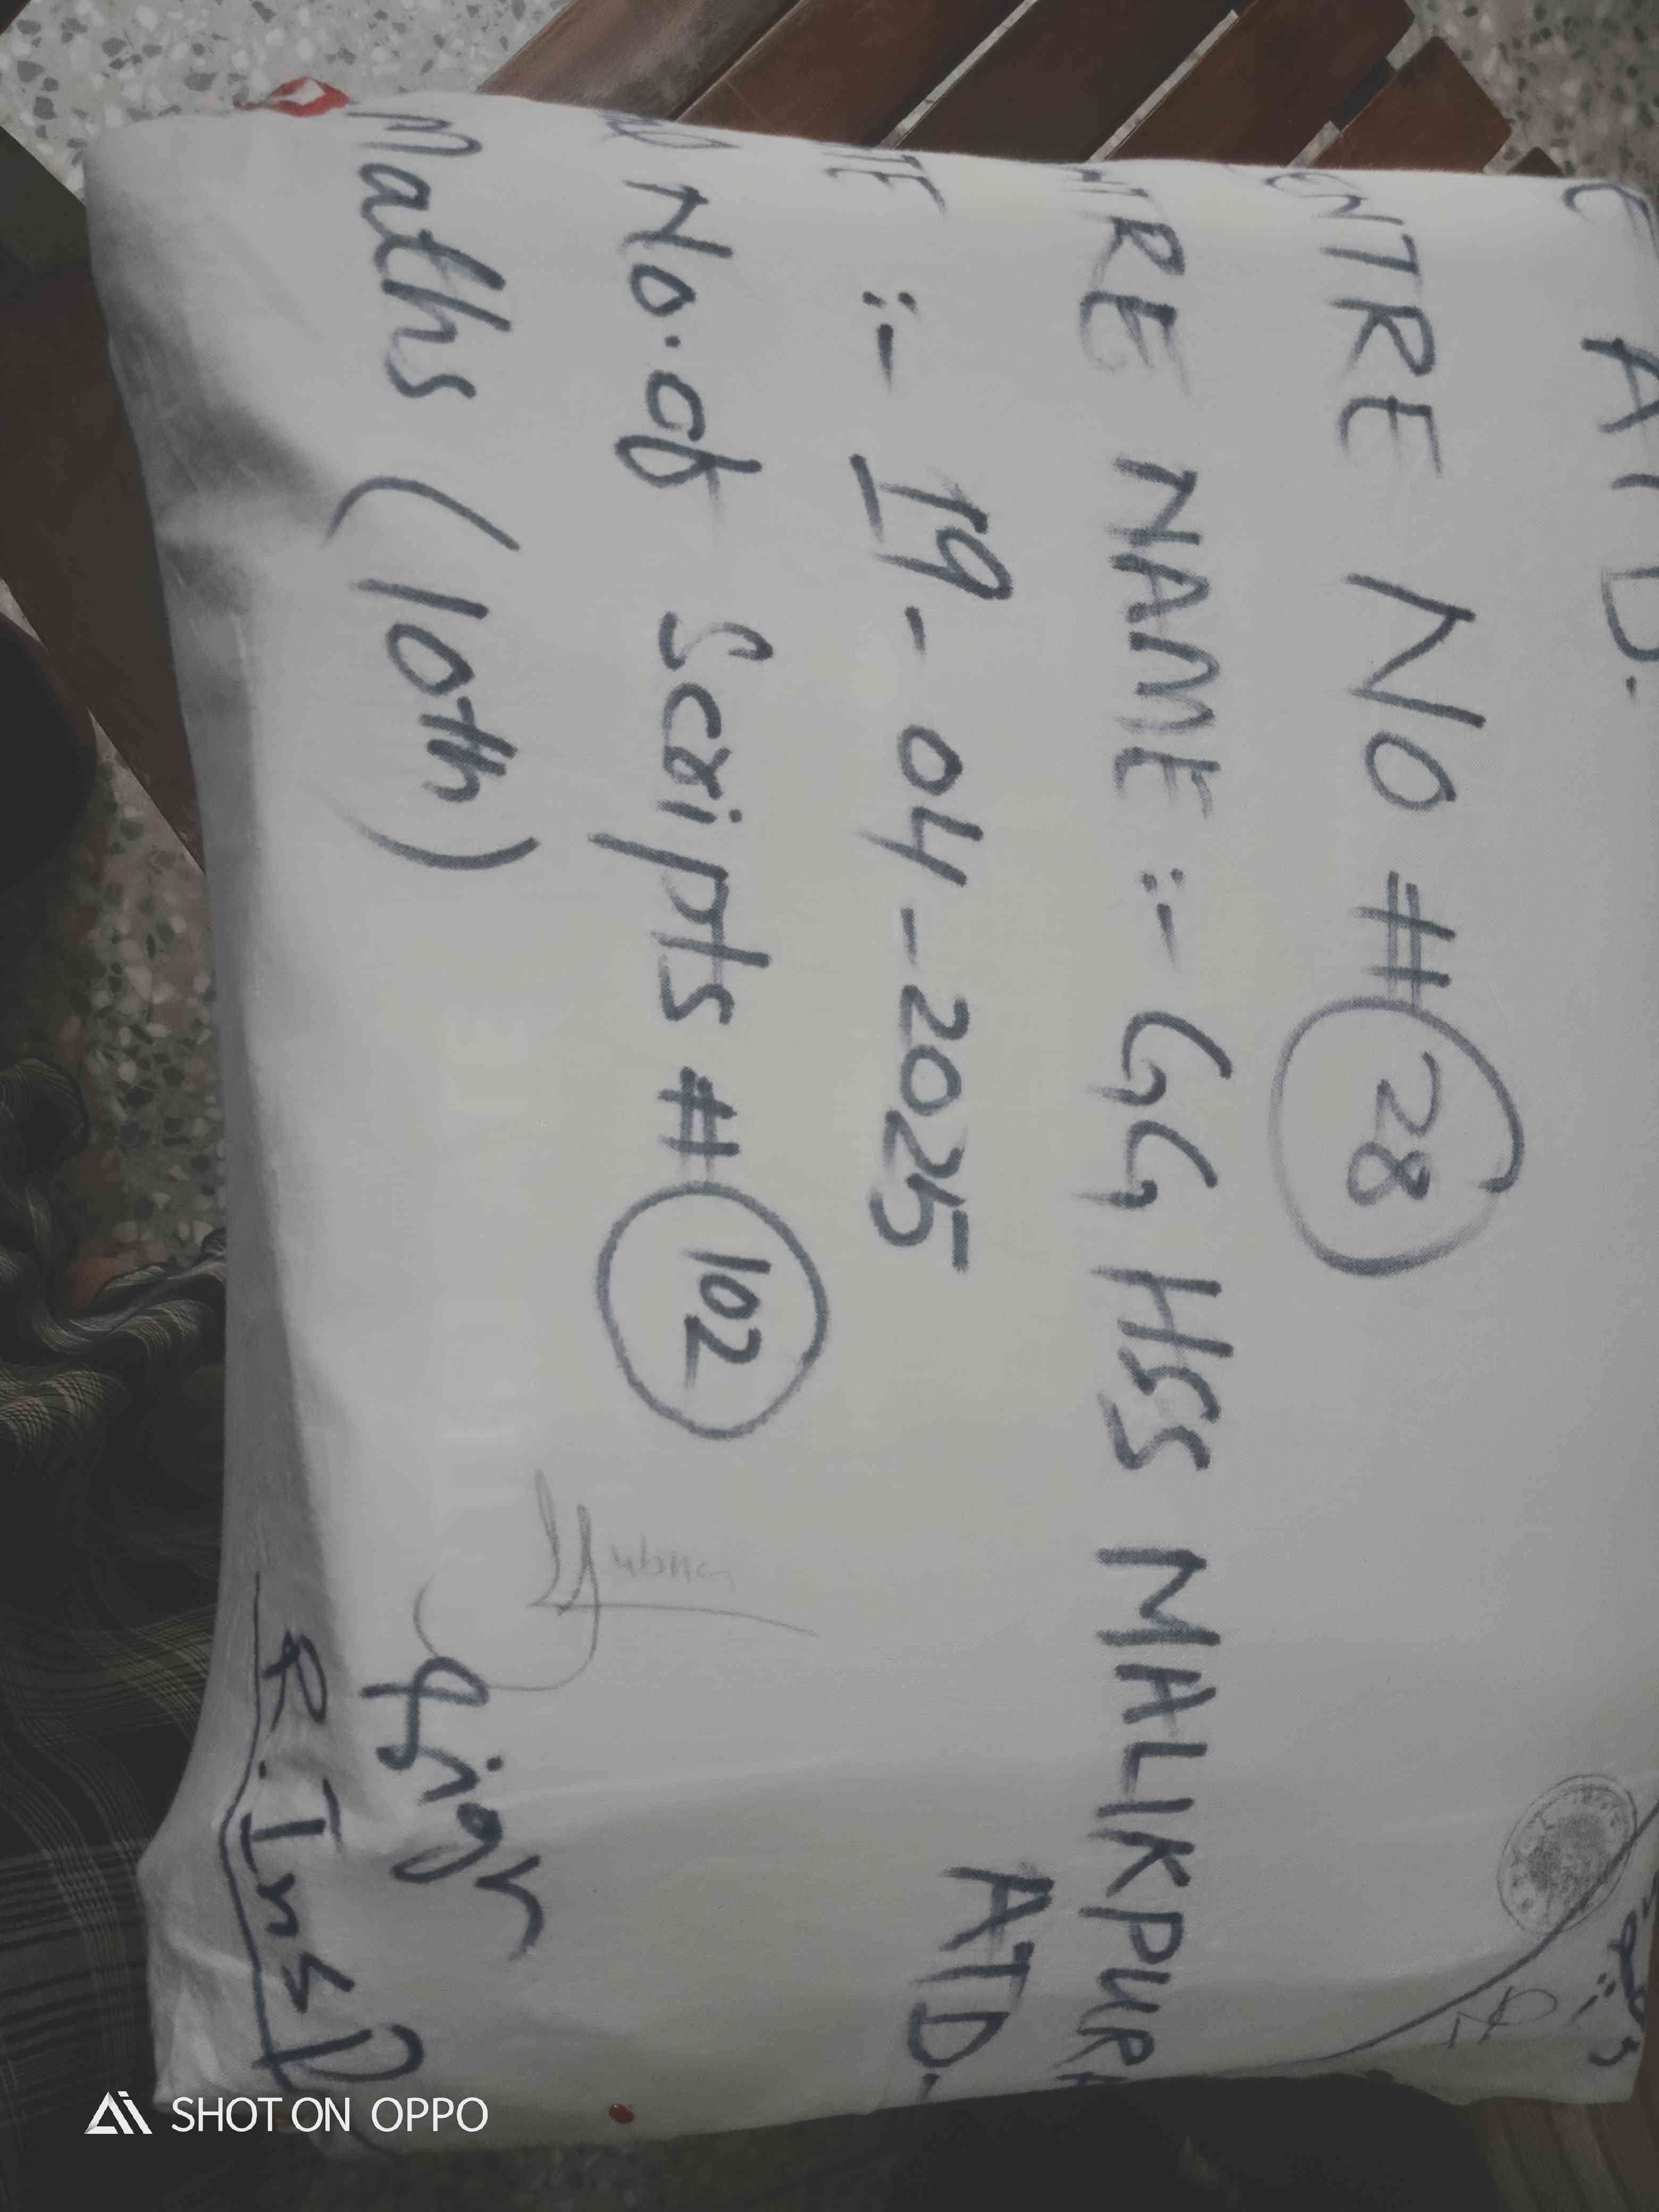 ATD.
NTRE NO # 28
TRE NAME :- GGHSS MALIKPURA
ATD.
TE :- 19-04-2025
No. of Scripts # 102
Maths (10th)
Sign
R. Insp
SHOT ON OPPO